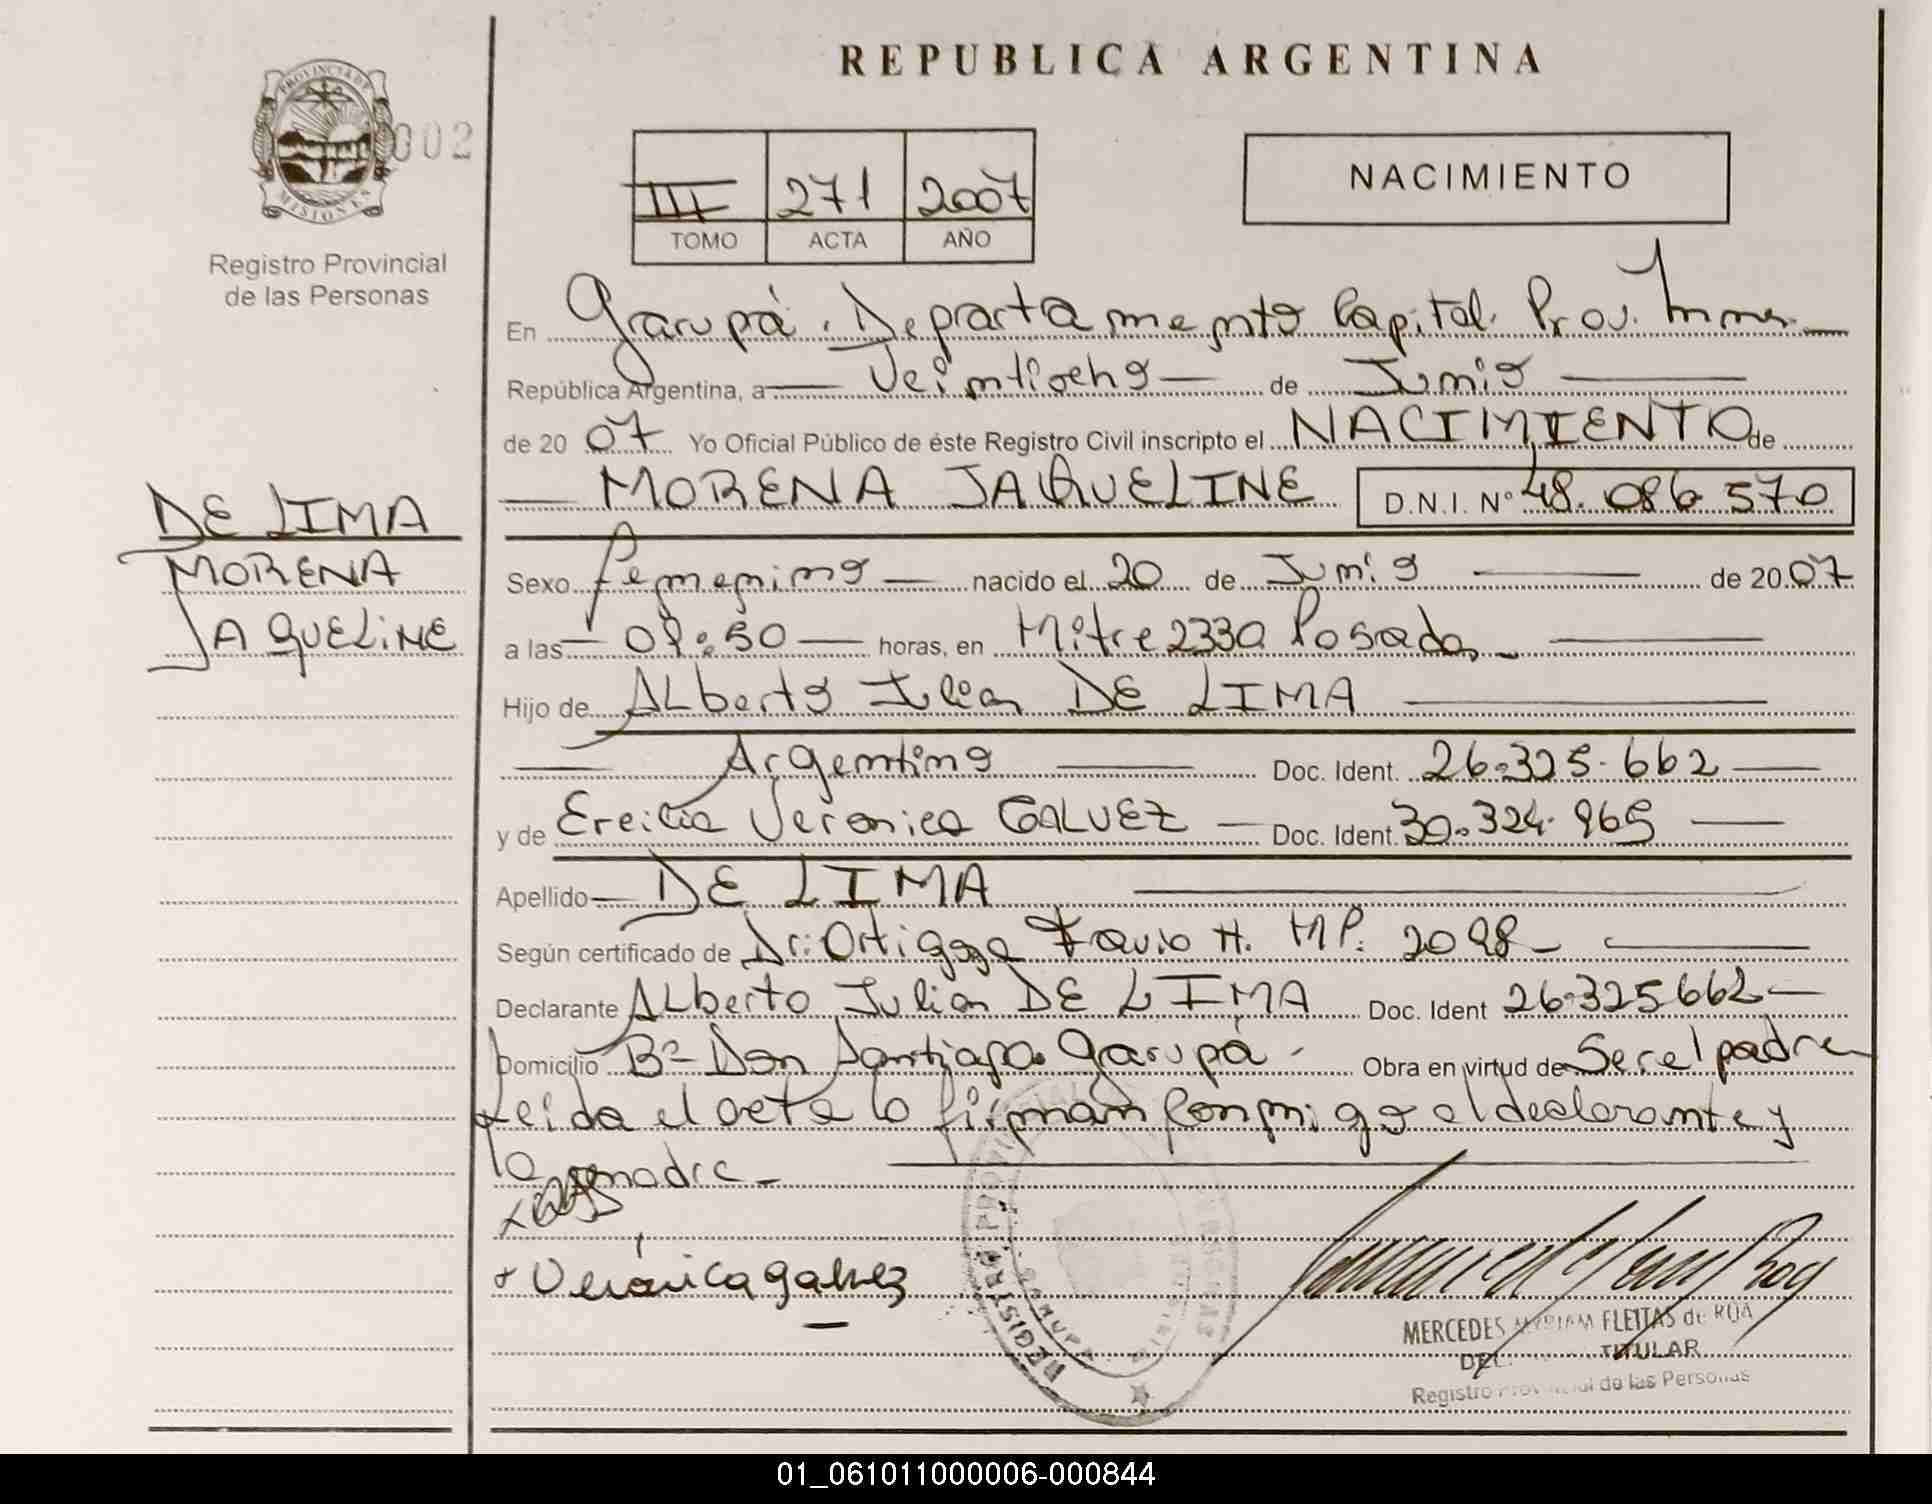 REPUBLICA ARGENTINA
PROVINCIA DE
MISIONES
002
Registro Provincial
de las Personas
III 271 2007
TOMO ACTA AÑO
NACIMIENTO
En Garupá. Departamento Capital. Prov.
República Argentina, a Veintiocho de Junio
de 2007 Yo Oficial Público de éste Registro Civil inscripto el NACIMIENTO de
MORENA JAQUELINE D.N.I. Nº 48.086.570
DE LIMA
MORENA
JAQUELINE
Sexo femenino nacido el 20 de Junio de 2007
a las :50 horas, en Mitre 2330 Posadas
Hijo de ALberto Julian DE LIMA
Argentino Doc. Ident. 26.325.662
y de Veronica GALVEZ Doc. Ident. 30.324.965
Apellido DE LIMA
Según certificado de Dr: H. MP. 2098
Declarante ALberto Julian DE LIMA Doc. Ident 26.325662
Domicilio Bº Don Santiago Garupá. Obra en virtud de Ser el padre
Leida el acta la firman conmigo el declarante y
la madre
Verónica galvez
REGISTRO PROVINCIAL PERSONAS
GARUPA
MERCEDES MYRIAM FLEITAS de ROA
TITULAR
Registro Provincial de las Personas
01_061011000006-000844